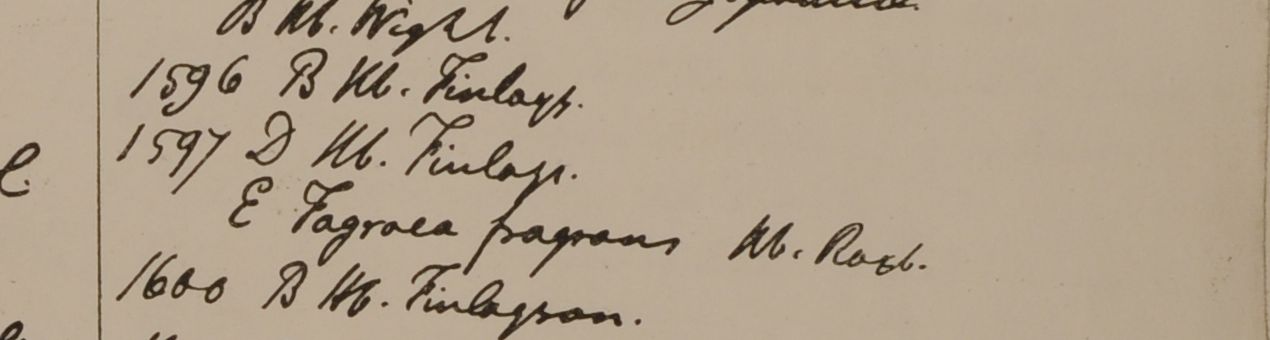 B Hb. Wight.
1596 B Hb. Finlays.
1597 D Hb. Finlays.
E Fagraea fragrans Hb. Roxb.
1600 B Hb. Finlayson.